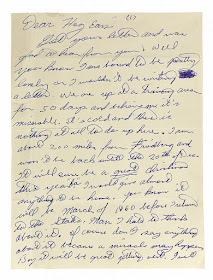 Dear "Hey Ears" (1)
Got your letter and was
good to hear from you. Well
you know I was bound to be pretty
lonely or I wouldn't be writing
a letter. We are up in a training area
for 50 days and believe me it's
miserable. It is cold and there is
nothing at all to do up here. I am
about 200 miles from Friedberg and
won't be back until the 20th of Dec.
It will sure be a great Christmas
this year. I would give almost
anything to be home. You know it
will be March of 1960 before I return
to the States. Man I hate to think
about it. Of course don't say anything
about it because a miracle may happen.
Boy it will be great getting out. I will